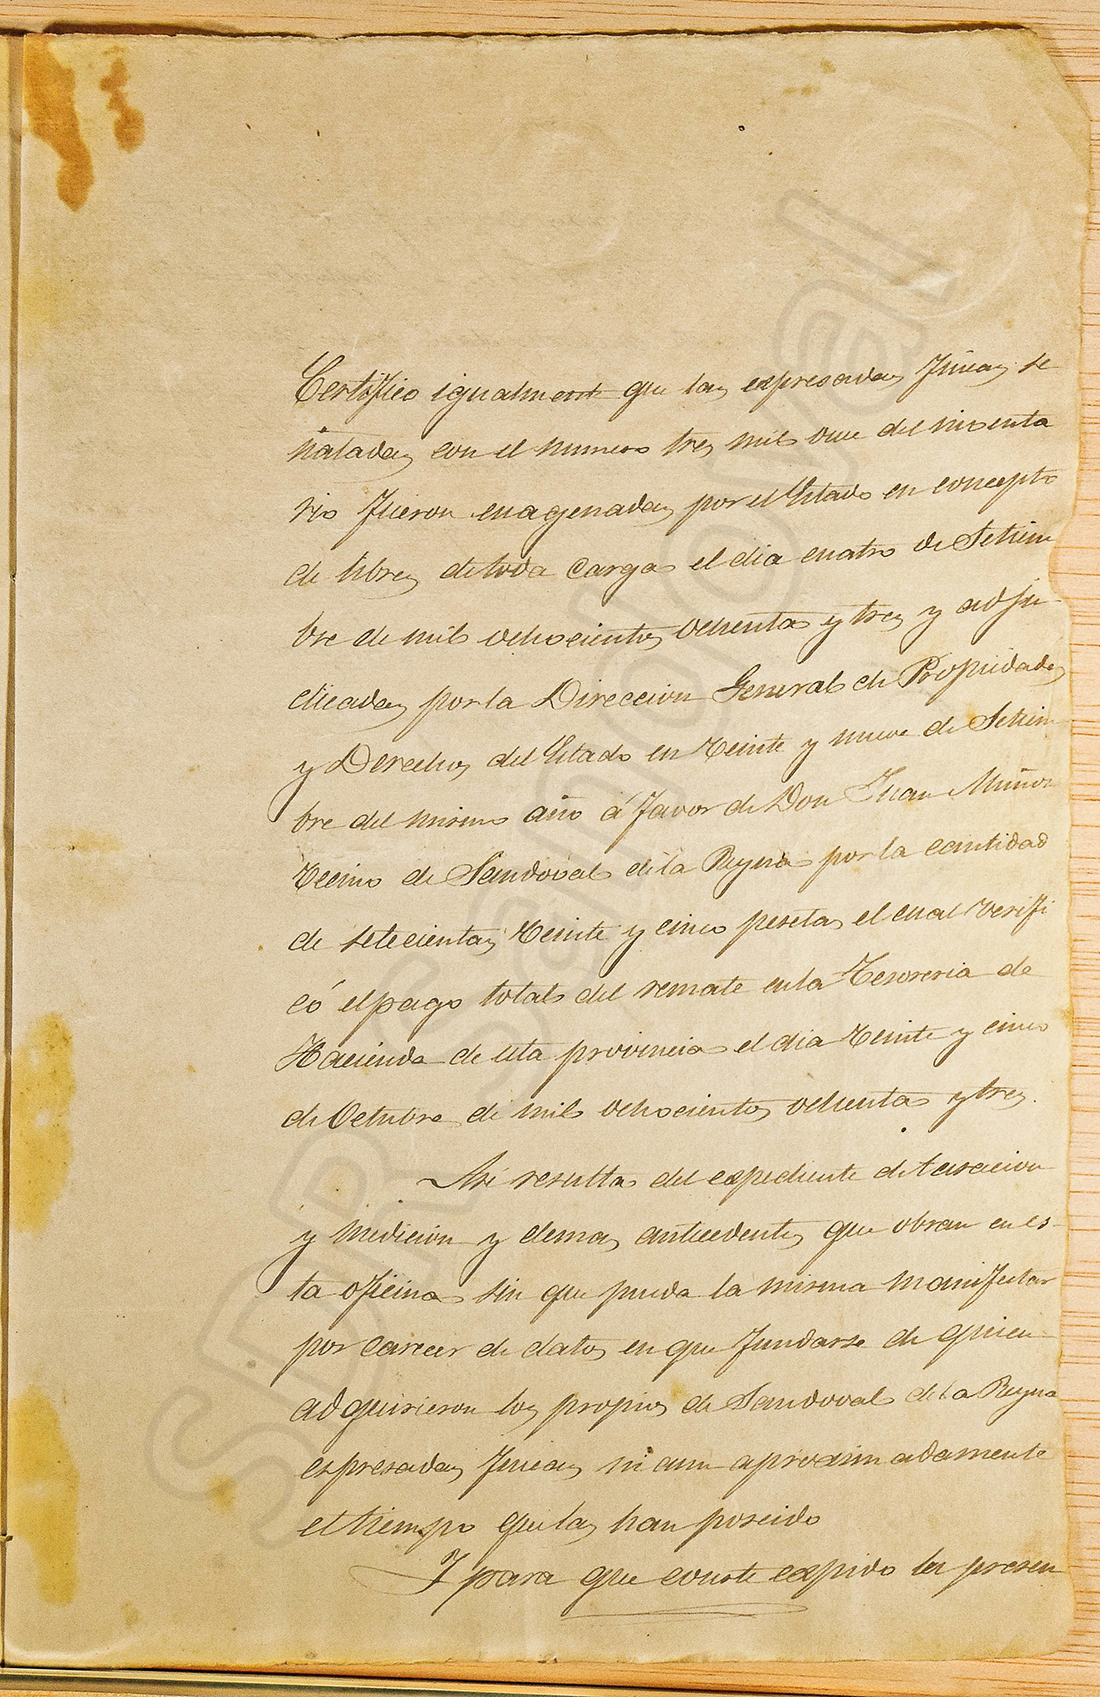 Certifico igualment que las expresadas fincas se
ñaladas con el numero tres mil once del inventa
rio fueron enagenadas por el Estado en concepto
de libres de toda carga el dia cuatro de Setiem
bre de mil ochocientos ochenta y tres y adju-
dicadas por la Direccion General de Propiedades
y Derechos del Estado en veinte y nueve de Setiem
bre del mismo año á favor de Don Juan Muñoz
vecino de Sandoval de la Reyna por la cantidad
de setecientas veinte y cinco pesetas el cual verifi
có el pago total del remate en la Tesoreria de
Hacienda de esta provincia el dia veinte y cinco
de Octubre de mil ochocientos ochenta y tres.
Asi resulta del expediente de tasacion
y medicion y demas antecedentes que obran en es-
ta oficina sin que pueda la misma manifestar
por carecer de datos en que fundarse de quien
adquirieron los propios de Sandoval de la Reyna
espresadas fincas ni aun aproximadamente
el tiempo que las han poseido
Y para que conste expido la presen